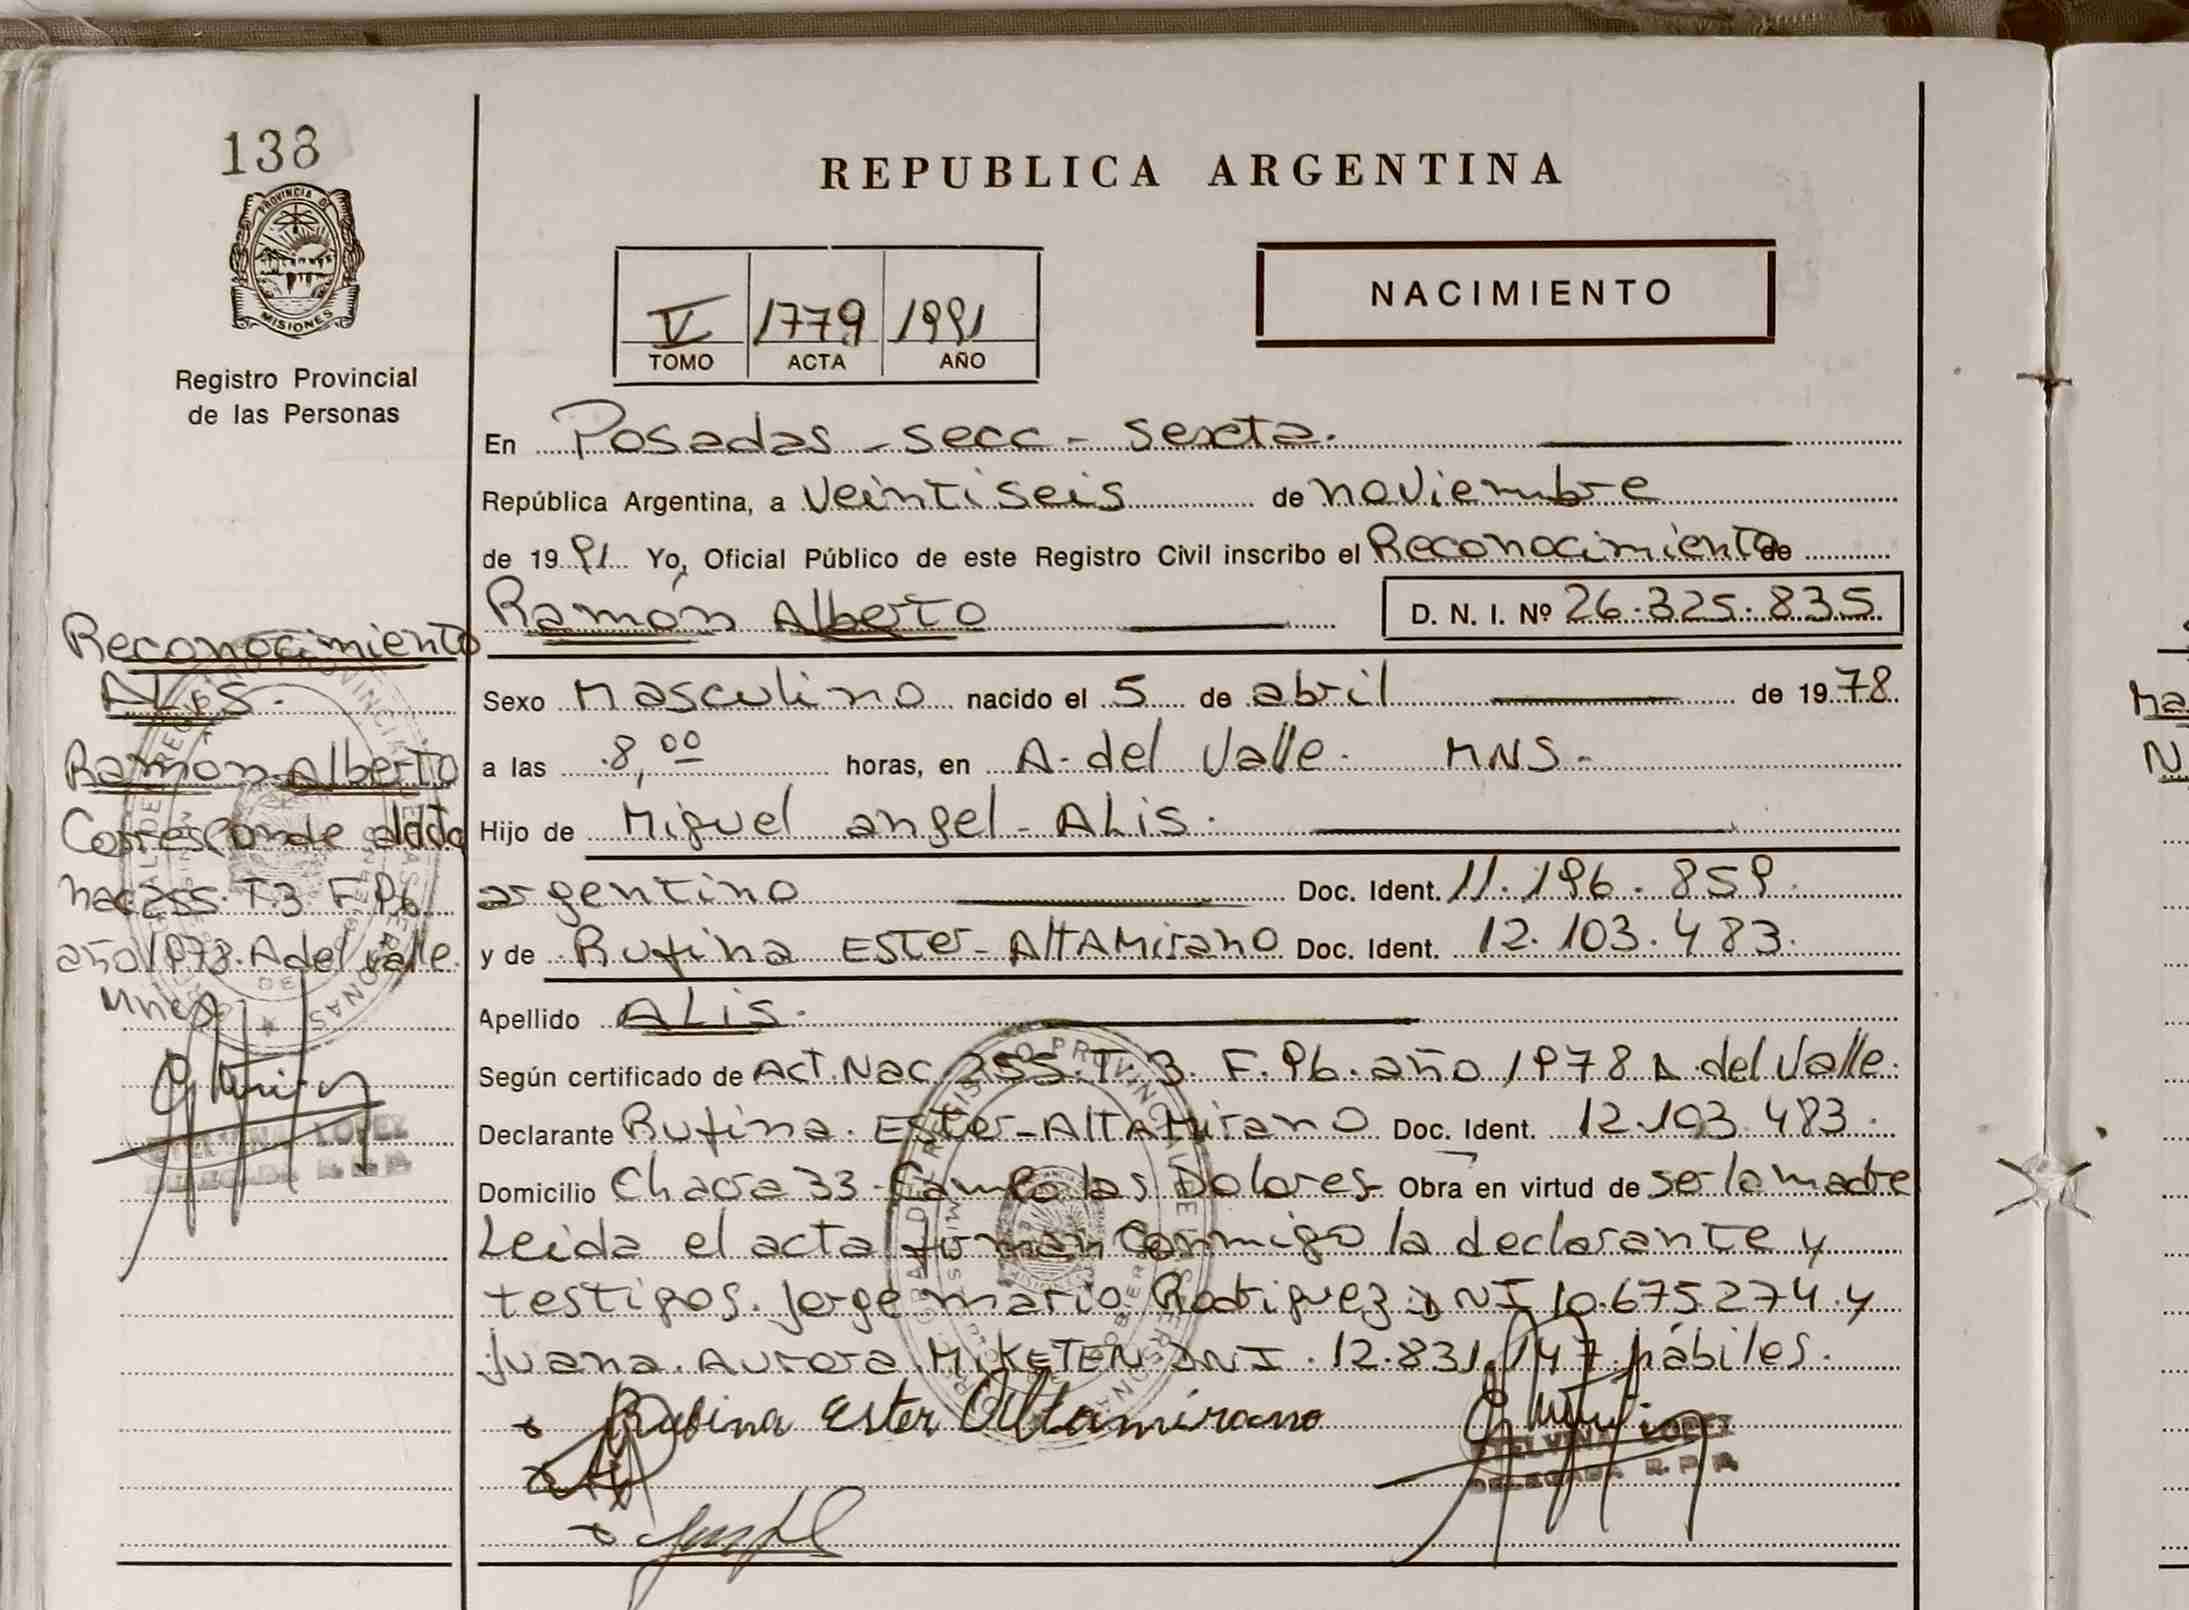 138
PROVINCIA DE
MISIONES
Registro Provincial
de las Personas
REPUBLICA ARGENTINA
V 1779 1991
TOMO ACTA AÑO
NACIMIENTO
En Posadas - secc - sexta.
República Argentina, a Veintiseis de noviembre
de 1991 Yo, Oficial Público de este Registro Civil inscribo el Reconocimiento de
Ramón Alberto D. N. I. Nº 26.325.835.
Sexo Masculino nacido el 5 de abril de 1978
a las 8,00 horas, en A. del Valle. MNS.
Hijo de Miguel angel - ALis.
argentino Doc. Ident. 11.196.859.
y de Rufina Ester - AltAMirano Doc. Ident. 12.103.483.
Apellido ALis.
Según certificado de Act. Nac. 255. T. 3. F. 96. año 1978 A. del Valle.
Declarante Rufina. Ester - AltAMirano Doc. Ident. 12.103.483.
Domicilio Chacra 33. Campo las Dolores - Obra en virtud de ser la madre
Leida el acta firman Conmigo la declarante y
testigos. Jorge mario Rodriguez DNI 10.675.274. y
Juana. Aurora MIKETEN DNI. 12.831.147 hábiles.
Rufina Ester Altamirano
STELVINA LOPEZ
DELEGADA R. P. P.
Reconocimiento
ALis.
Ramón Alberto
Corresponde al acta
nac 255. T. 3 F. 96
año 1978. A del Valle.
Mnes
STELVINA LOPEZ
DELEGADA R. P. P.